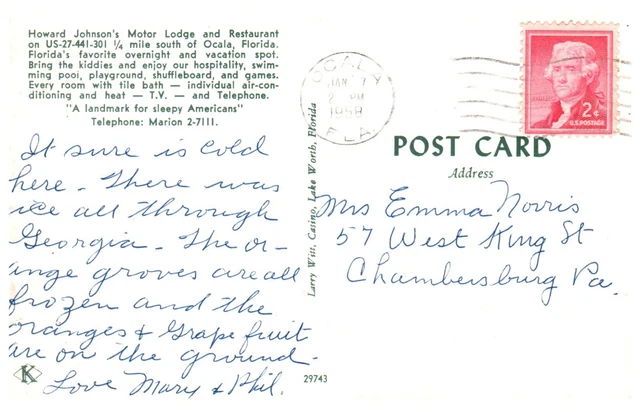 Howard Johnson's Motor Lodge and Restaurant
on US-27-441-301 ¼ mile south of Ocala, Florida.
Florida's favorite overnight and vacation spot.
Bring the kiddies and enjoy our hospitality, swim-
ming pool, playground, shuffleboard, and games.
Every room with tile bath — individual air-con-
ditioning and heat — T.V. — and Telephone.
"A landmark for sleepy Americans"
Telephone: Marion 2-7111.
It sure is cold
here. There was
ice all through
Georgia. The or-
ange groves are all
frozen and the
oranges & Grape fruit
are on the ground.
Love Mary & Phil.
K
29743
Larry Witt, Casing, Lake Worth, Florida
JAN 7
1959
FLA.
2¢
U.S. POSTAGE
POST CARD
Address
Mrs Emma Norris
57 West King St
Chambersburg Pa.